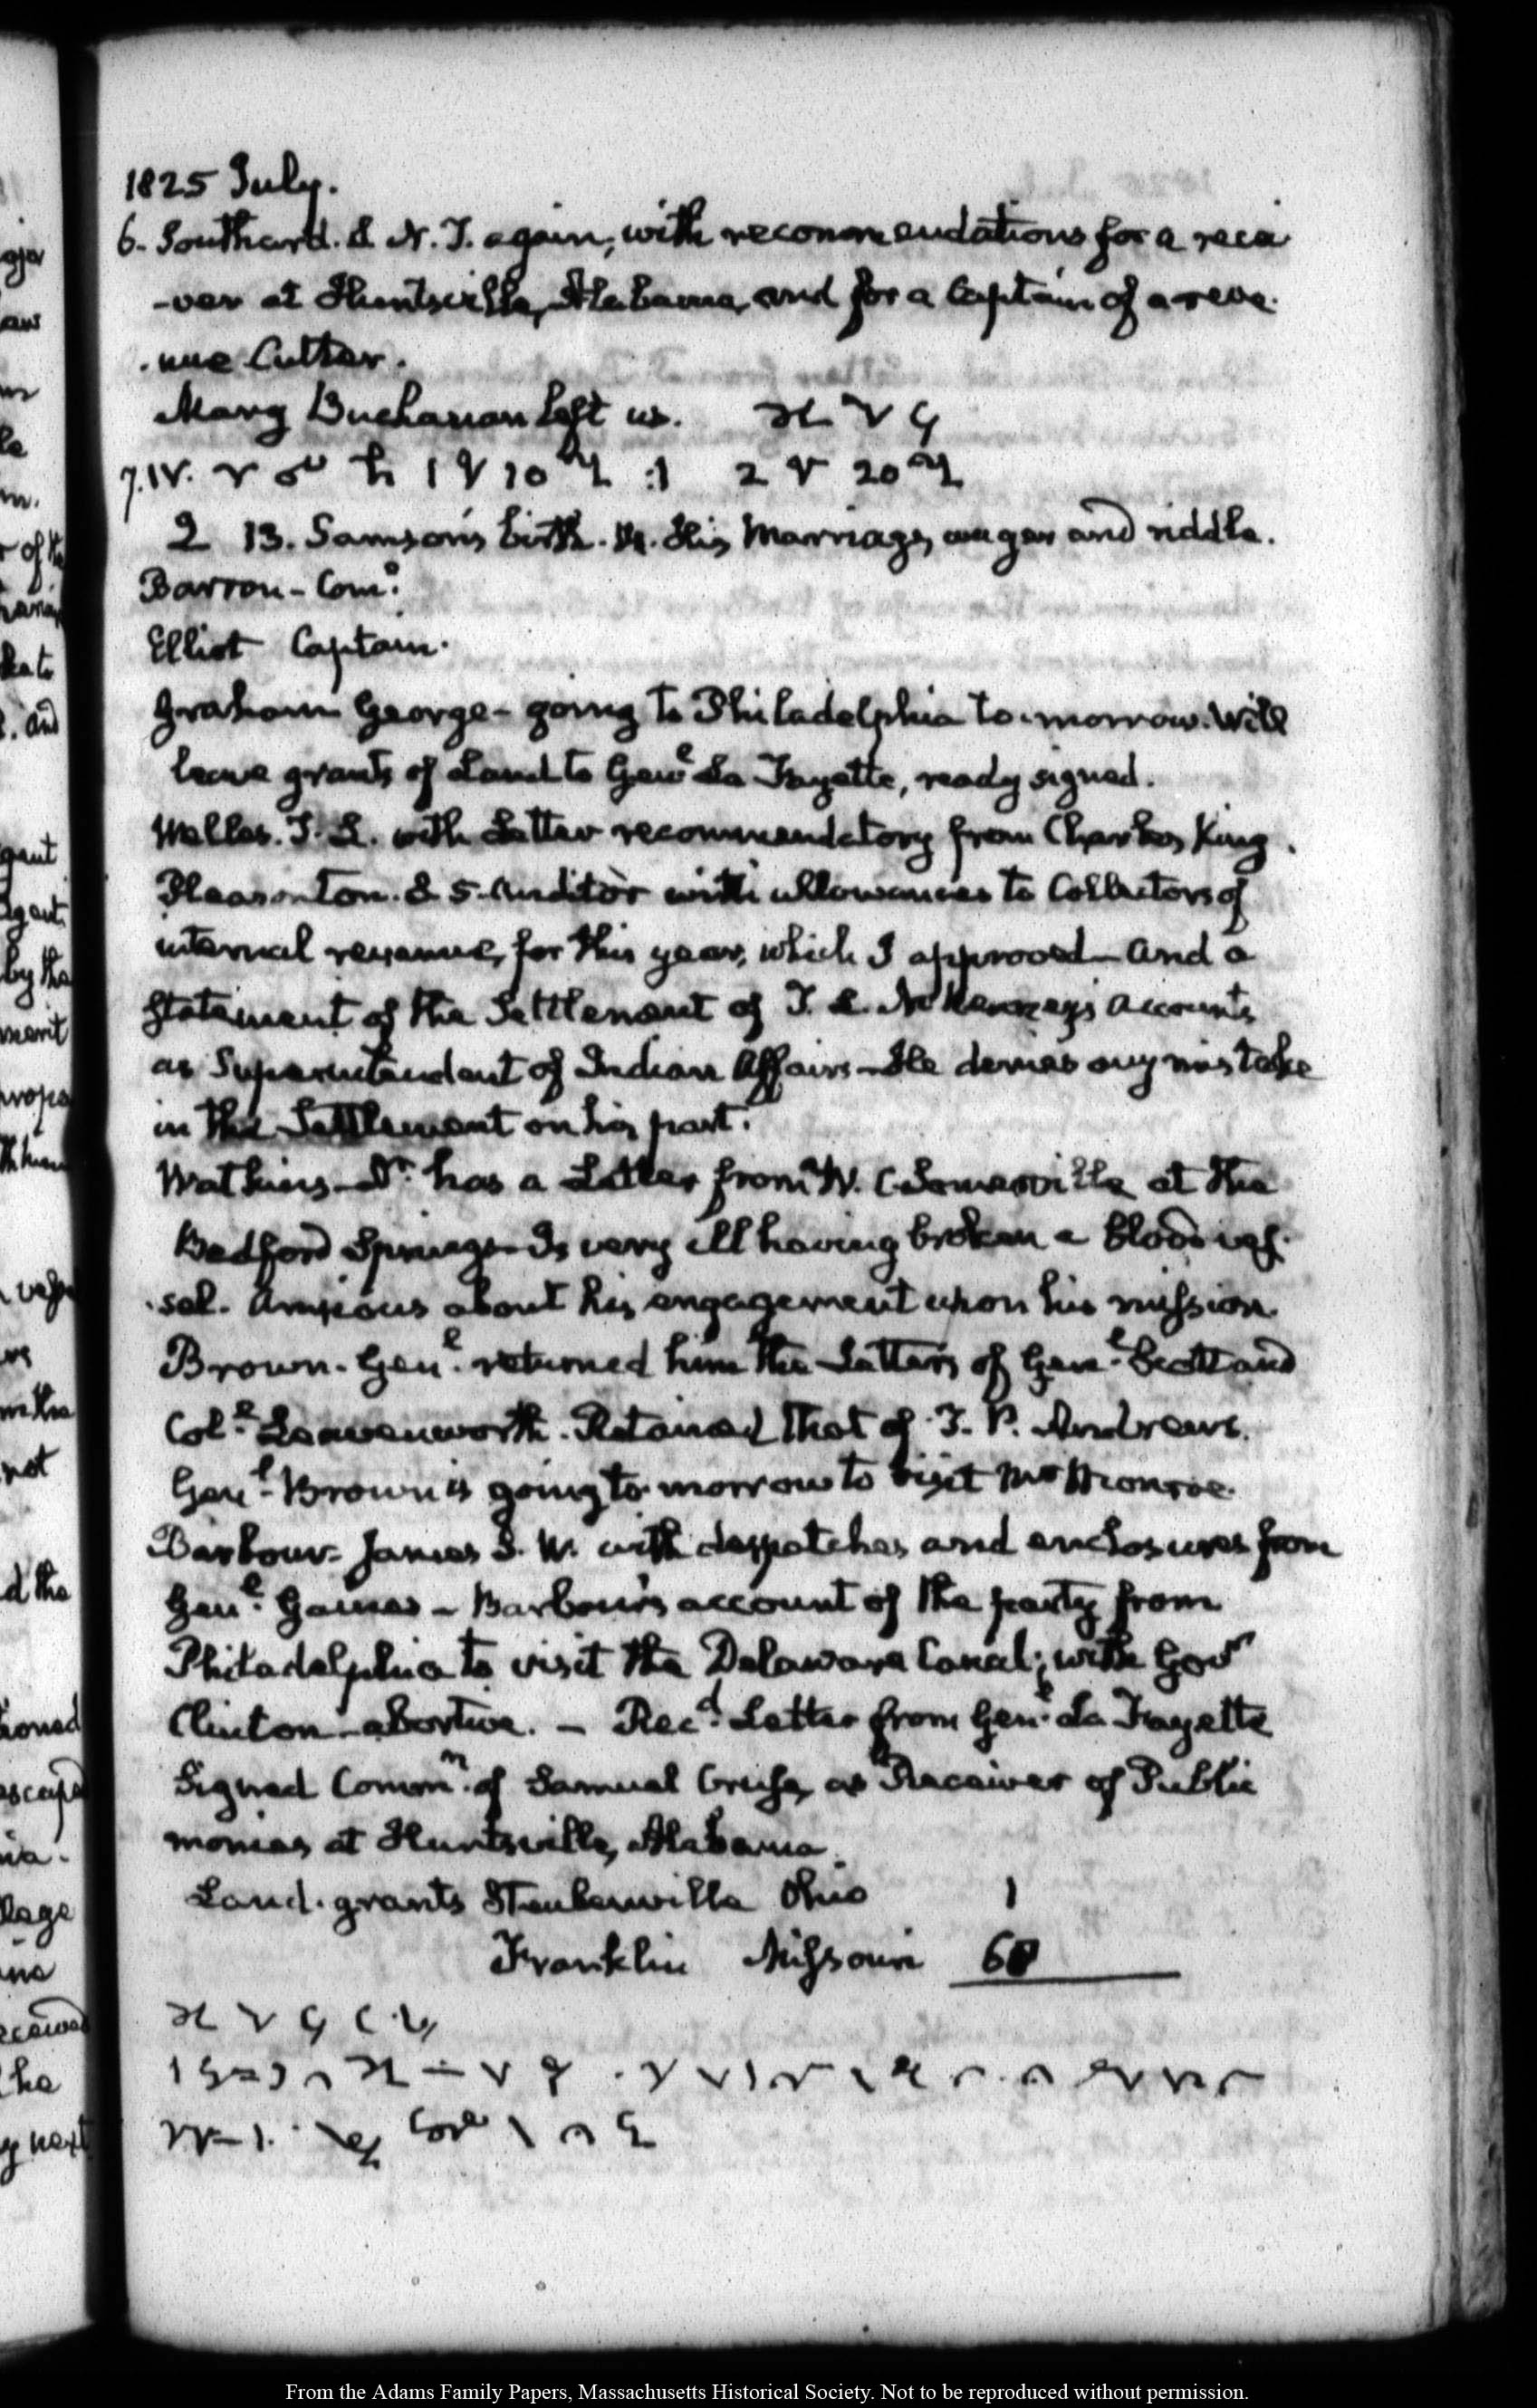 1825 July.
6. Southard. S. N. J. again, with recommendations for a recei
-ver at Huntsville, Alabama, and for a Captain of a reve-
-nue Cutter.
Mary Buchanan left us.
7. IV.
13. Samson's birth. 14. His Marriage, wager and riddle.
Barron - Com.o
Elliot Captain.
Graham George - going to Philadelphia to-morrow. Will
leave grants of Land to Genl La Fayette, ready signed.
Welles. with Letter recommendatory from Charles King.
Pleasonton. S 5. Auditor with allowances to Collectors of
internal revenue, for this year, which I approved - And a
Statement of the Settlement of T. L. McKenney's Accounts
as Superintendent of Indian Affairs - He denies any mistake
in the Settlement on his part.
Watkins - Dr. has a Letter from W. C. Somerville at the
Bedford Springs - Is very ill having broken a blood ves-
-sel. Anxious about his engagement upon his mission.
Brown - Genl. returned him the Letters of Genl. Scott and
Coll. Leavenworth. Retained that of T. P. Andrews.
Genl. Brown is going to-morrow to visit Mr Monroe.
Barbour - James S. W. with despatches and enclosures from
Genl. Gaines - Barbour's account of the party from
Philadelphia to visit the Delaware Canal; with Govr
Clinton - abortive. - Recd. Letter from Genl. La Fayette
Signed Commn. of Samuel Cruse, as Receiver of Public
monies at Huntsville, Alabama.
Land-grants Steubenville Ohio 1
Franklin Missouri
From the Adams Family Papers, Massachusetts Historical Society. Not to be reproduced without permission.